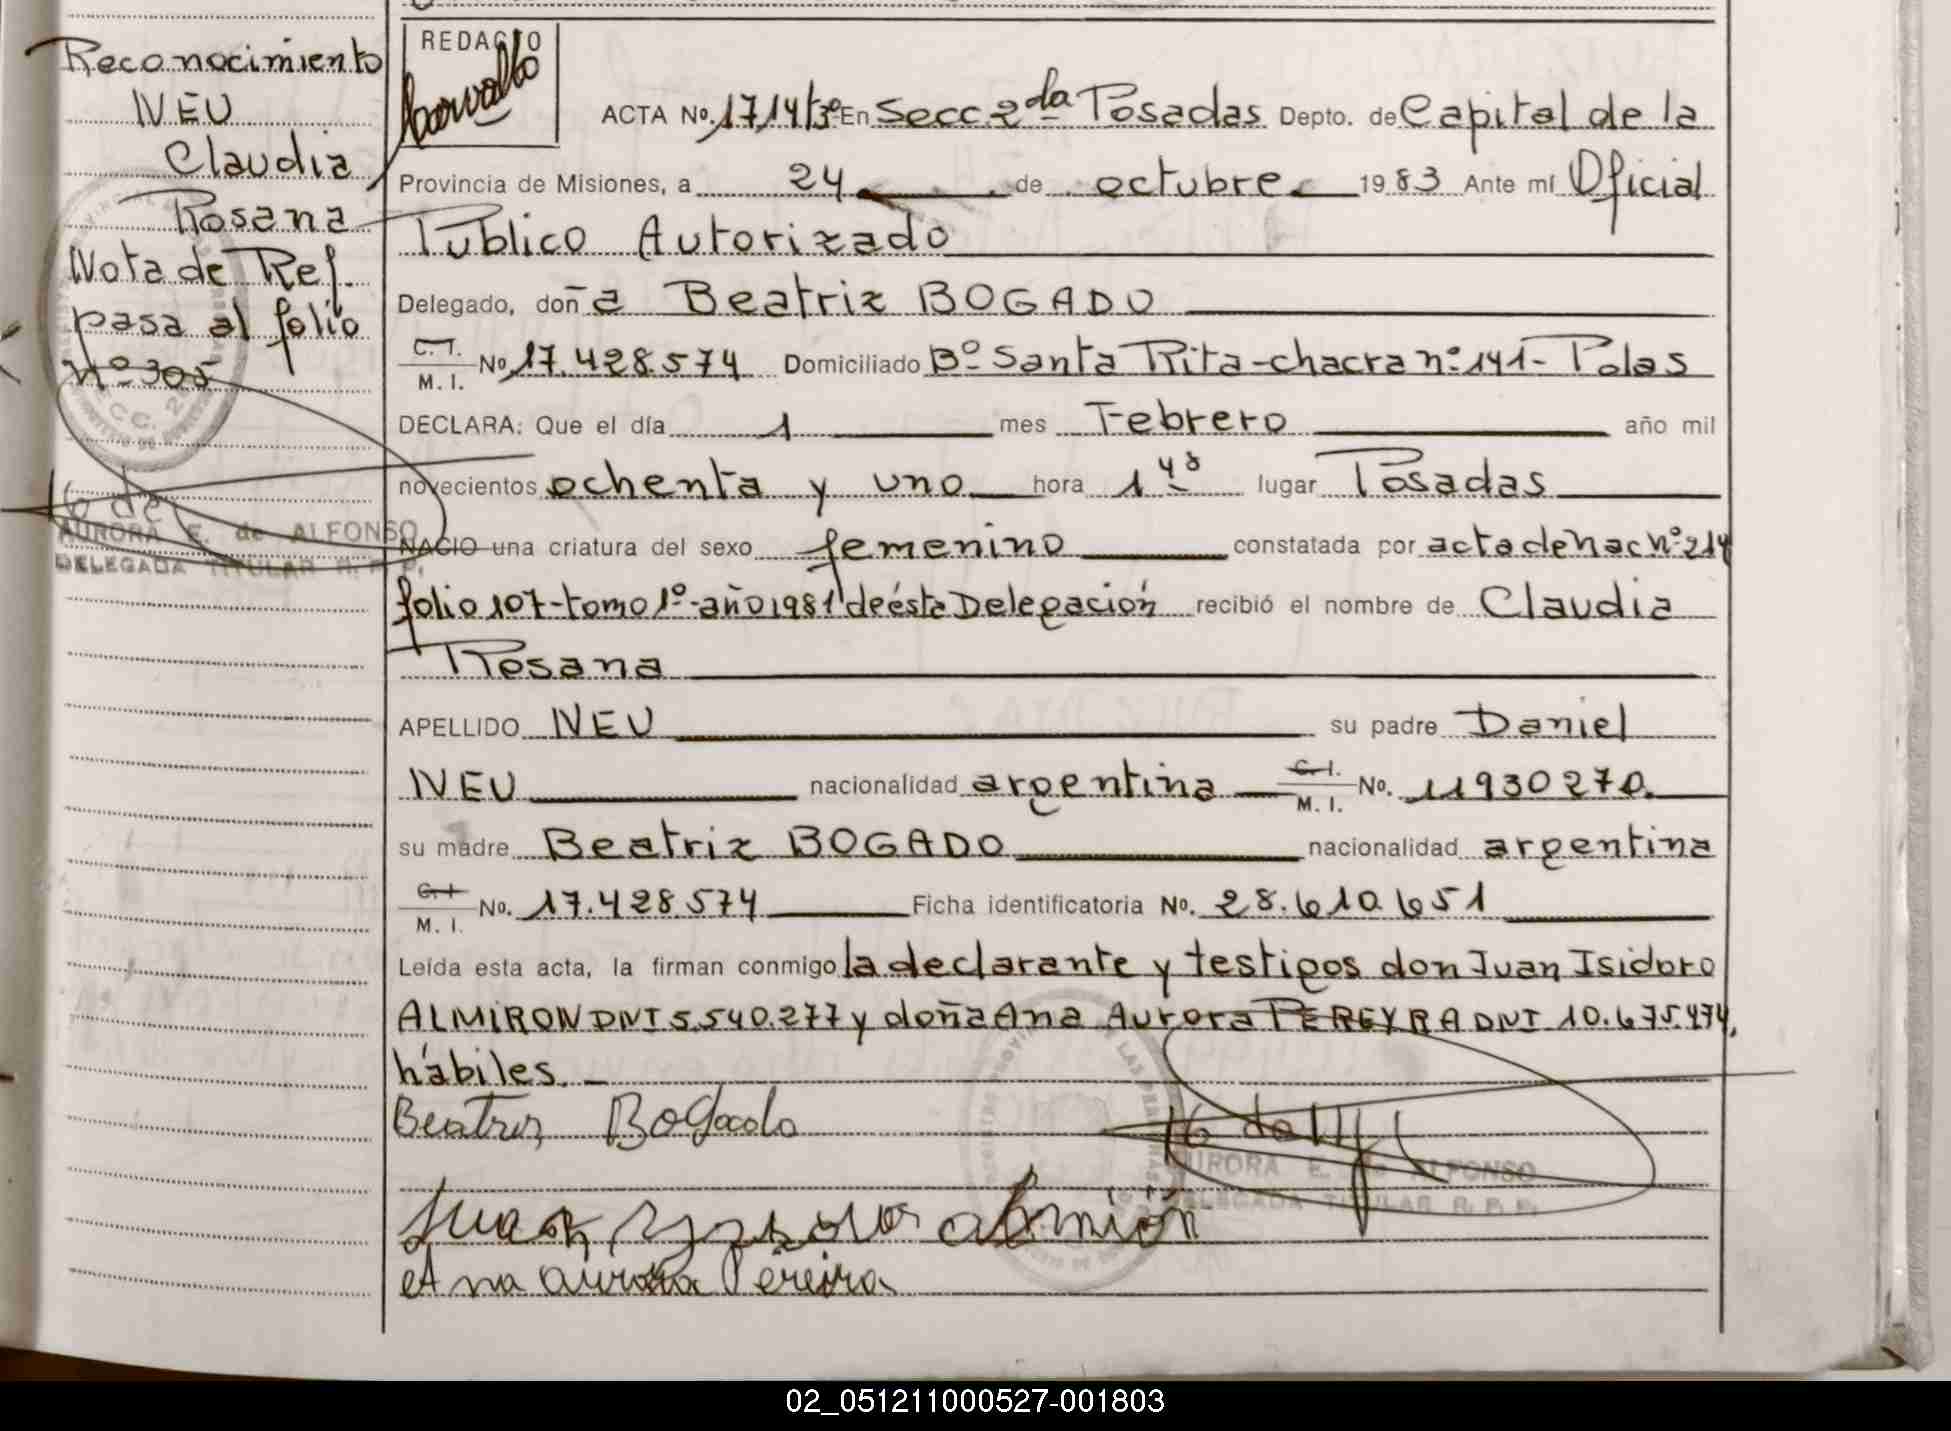 Reconocimiento
NEU
Claudia
Rosana
Nota de Ref.
pasa al folio
nº 305
AURORA E. de ALFONSO
DELEGADA TITULAR R. P. P.
REDACTO
ACTA No. 1714 Tº 3º En Secc. 2da Posadas Depto. de Capital de la
Provincia de Misiones, a 24 de octubre 1983 Ante mí Oficial
Público Autorizado
Delegado, doña Beatriz BOGADO
C. I. M. I. No. 17.428.574 Domiciliado Bº Santa Rita-chacra nº 141- Pdas
DECLARA: Que el día 1 mes Febrero año mil
novecientos ochenta y uno hora 1 48 lugar Posadas
NACIO una criatura del sexo femenino constatada por acta de Nac nº 214
folio 107-tomo 1º-año 1981 de ésta Delegación recibió el nombre de Claudia
Rosana
APELLIDO NEU su padre Daniel
NEU nacionalidad argentina C. I. M. I. No. 11930270.
su madre Beatriz BOGADO nacionalidad argentina
C. I. M. I. No. 17.428.574 Ficha identificatoria No. 28.610.651
Leída esta acta, la firman conmigo la declarante y testigos don Juan Isidoro
ALMIRON DNI 5.540.277 y doña Ana Aurora PEREYRA DNI 10.675.474,
hábiles.
Beatriz Bogado
AURORA E. de ALFONSO
DELEGADA TITULAR R. P. P.
Juan Ysidoro almirón
Ana aurora Pereira
02_051211000527-001803